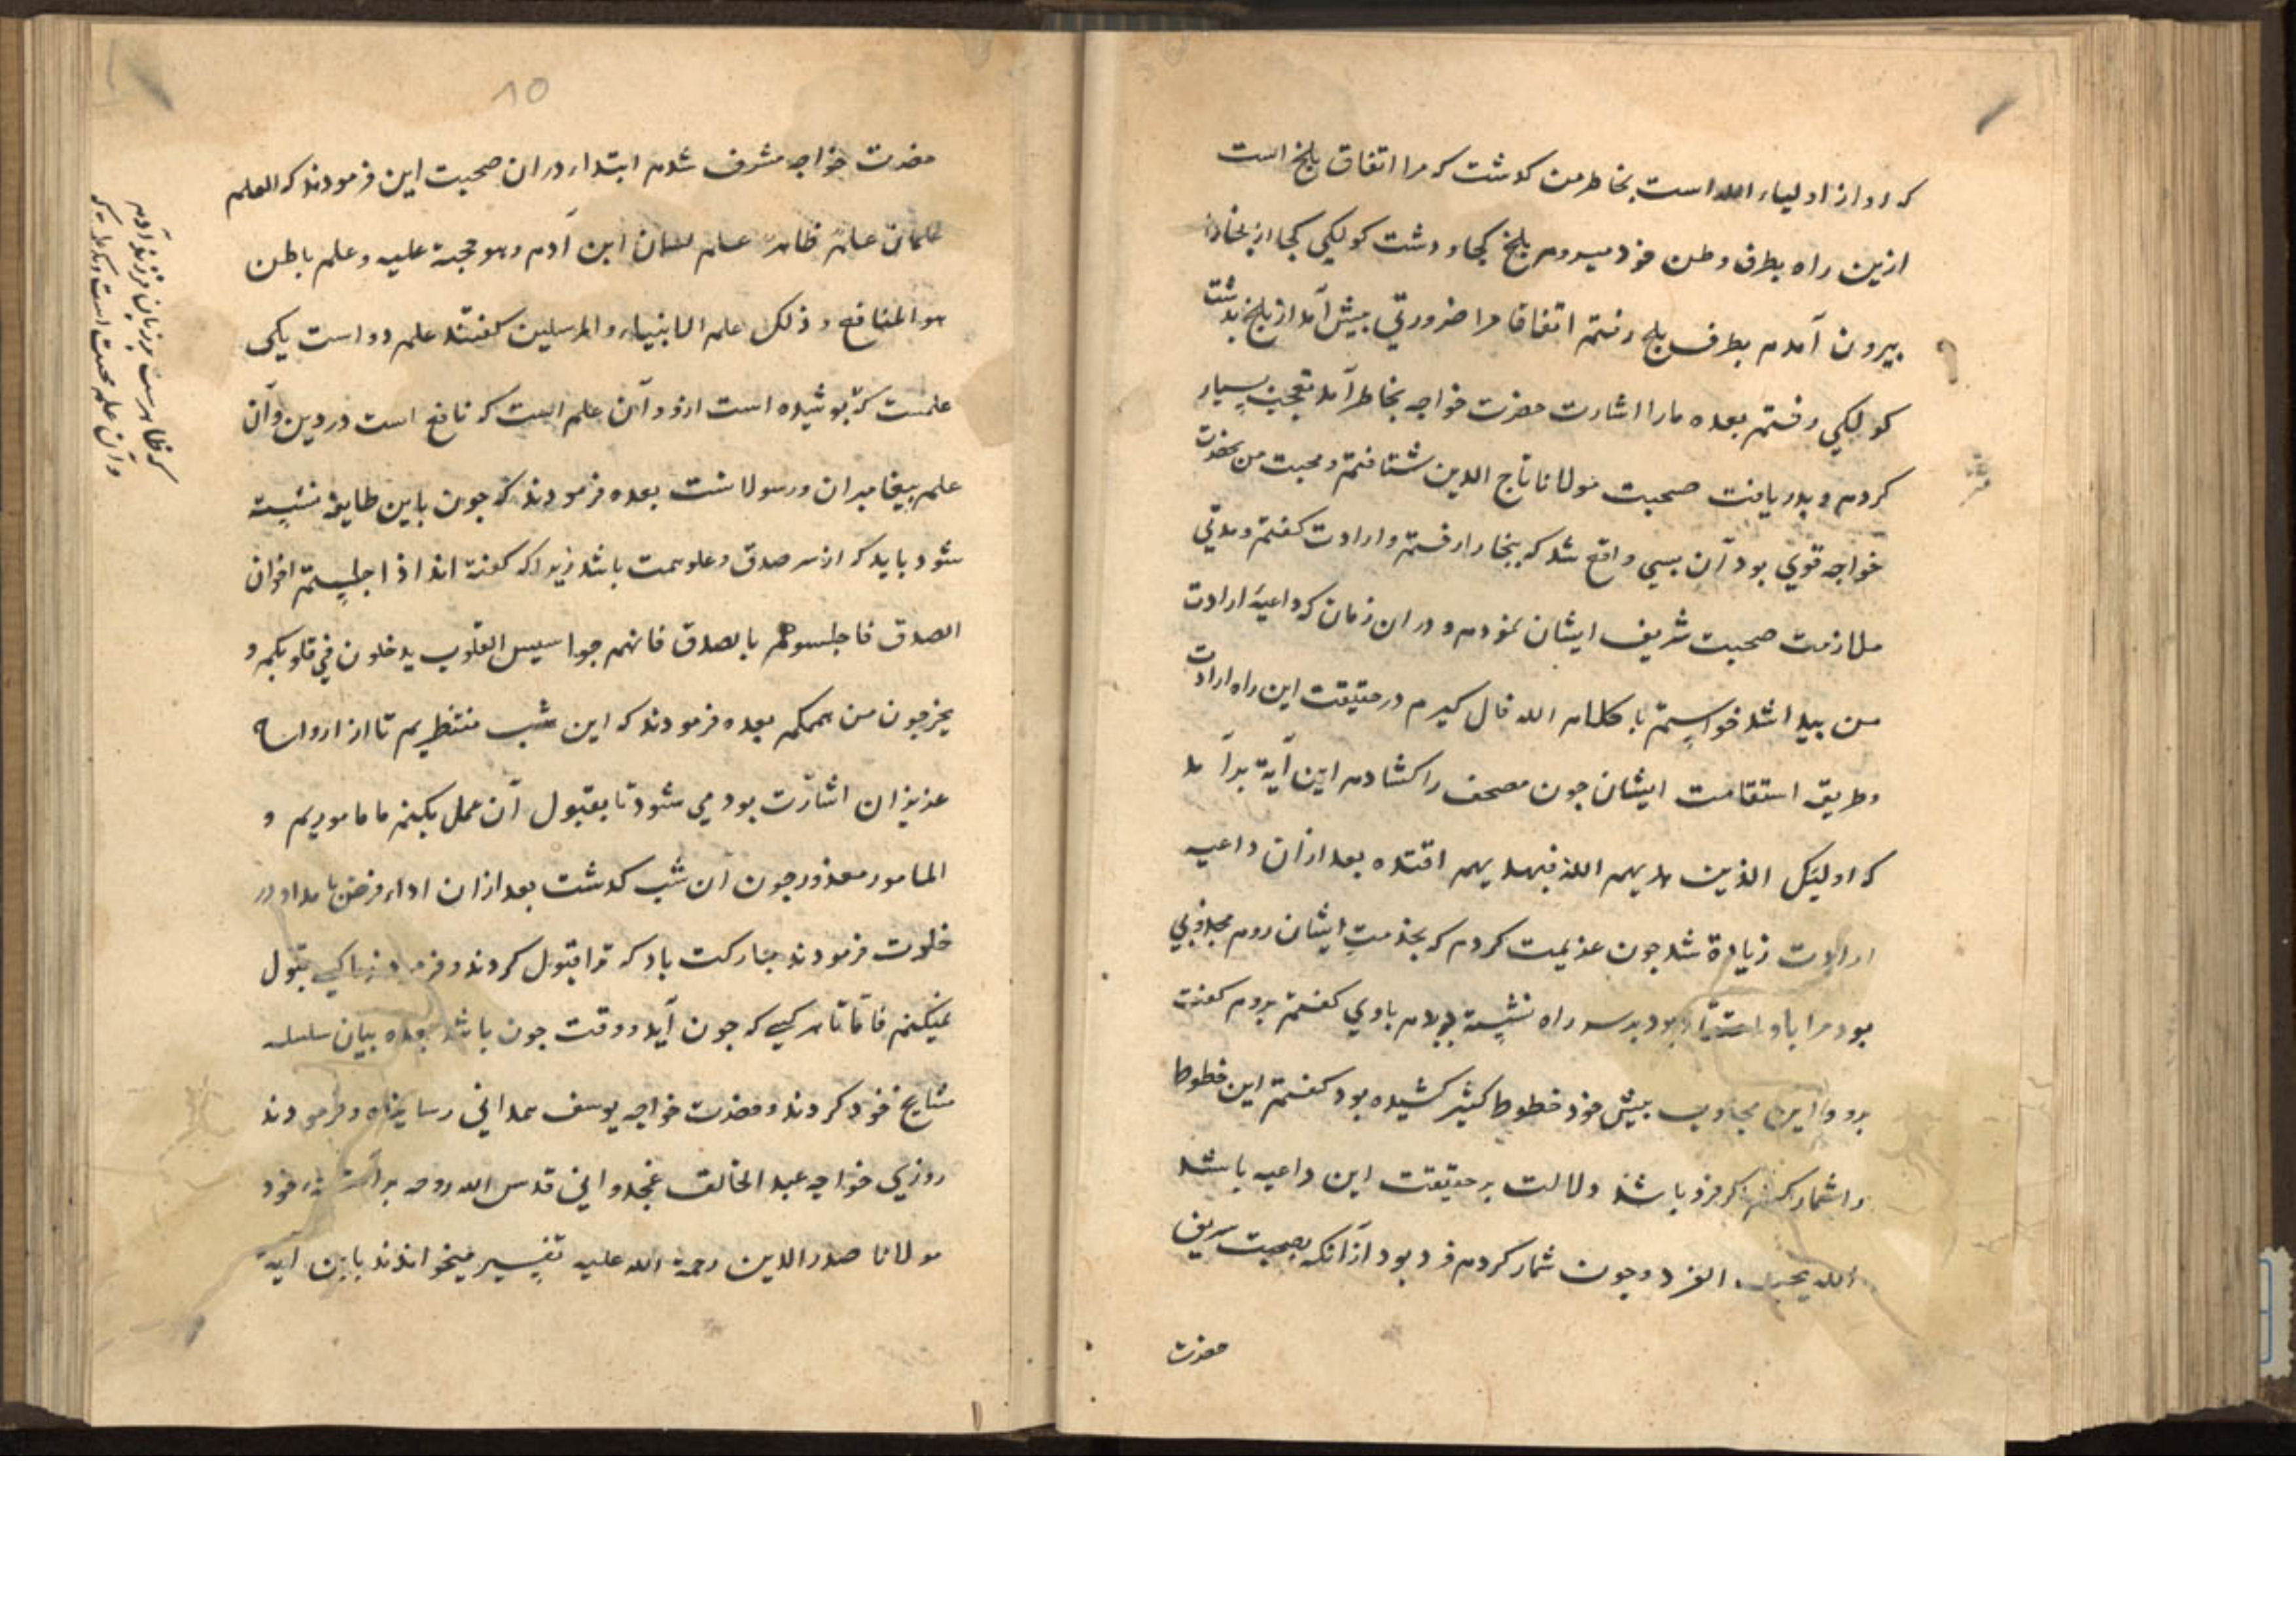 که او از اولیاء الله است بخاطر من کدشت که مرا اتفاق بلخ است
ازین راه بطرف وطن خود میروم بلخ کجا و دشت کولکی کجا از بخارا
بیرون آمدم بطرف بلخ رفتم اتفاقا مرا ضرورتی بیش آمد از بلخ بدشت
کولکی رفتم بعده مارا اشارت حضرت خواجه بخاطر آمد تعجب بسیار
کردم و بدریافت صحبت مولانا تاج الدین شتافتم و محبت من بحضرت
خواجه قوی بود آن سببی واقع شد که ببخارا رفتم و ارادت کفتم و مدتی
ملازمت صحبت شریف ایشان نمودم و در ان زمان که داعیهٔ ارادت
من بیدا شد خواستم با کلام الله فال کیرم در حقیقت این راه ارادت
وطریق استقامت ایشان جون مصحف را کشادم این آیة برآمد
که اولئک الذین هدیهم الله فبهدیهم اقتده بعد ازان داعیه
ارادت زیادة شد جون عزیمت کردم که بخدمت ایشان روم مجذوبی
بود مرا باو بود بر سر راه نشسته دیدم باوی کفتم بروم کفت
برو و این مجذوب بیش خود خطوط کثیر کشیده بود کفتم این خطوط
را شمار کنم اکر فرد باشد دلالت بر حقیقت این داعیه باشد
الله یحب الفرد وجون شمار کردم فرد بود ازآنکه بصحبت شریف
حضرت
10
حضرت خواجه مشرف شدم ابتداء در ان صحبت این فرمودند که العلم
علمان علم ظاهر علم لسان ابن آدم وهو حجة علیه وعلم باطن
هو المنافع وذلک علم الانبیاء والمرسلین کفتند علم دو است یکی
علمست که بوشیده است ازو و آن علم است که نافع است در دین و آن
علم بیغامبران و رسولانست بعده فرمودند که جون باین طایفه نشسته
شود باید که از سر صدق و علو همت باشد زیراکه کفته اند اذا جلستم اخوان
الصدق فاجلسوهم بالصدق فانهم جواسیس القلوب یدخلون فی قلوبکم و
یخرجون من هممکم بعده فرمودند که این شب منتظریم تا از ارواح
عزیزان اشارت بود می شود تا بقبول آن عمل بکنم ما ماموریم و
المامور معذور جون آن شب کدشت بعد ازان اداء فرض بامداد در
خلوت فرمودند مبارکت باد که ترا قبول کردند و فرمودند ما کسی قبول
نمیکنم فاما تا هر کسی که جون آید و وقت جون باشد بعده بیان سلسله
مشایخ خود کردند و حضرت خواجه یوسف همدانی رسانیدند و فرمودند
روزی خواجه عبد الخالق غجدوانی قدس الله روحه بر استاد خود
مولانا صدرالدین رحمة الله علیه تفسیر میخواندند باین آیة
که ظاهرست بر زبان فرزند آدم
وآن علم حجت است